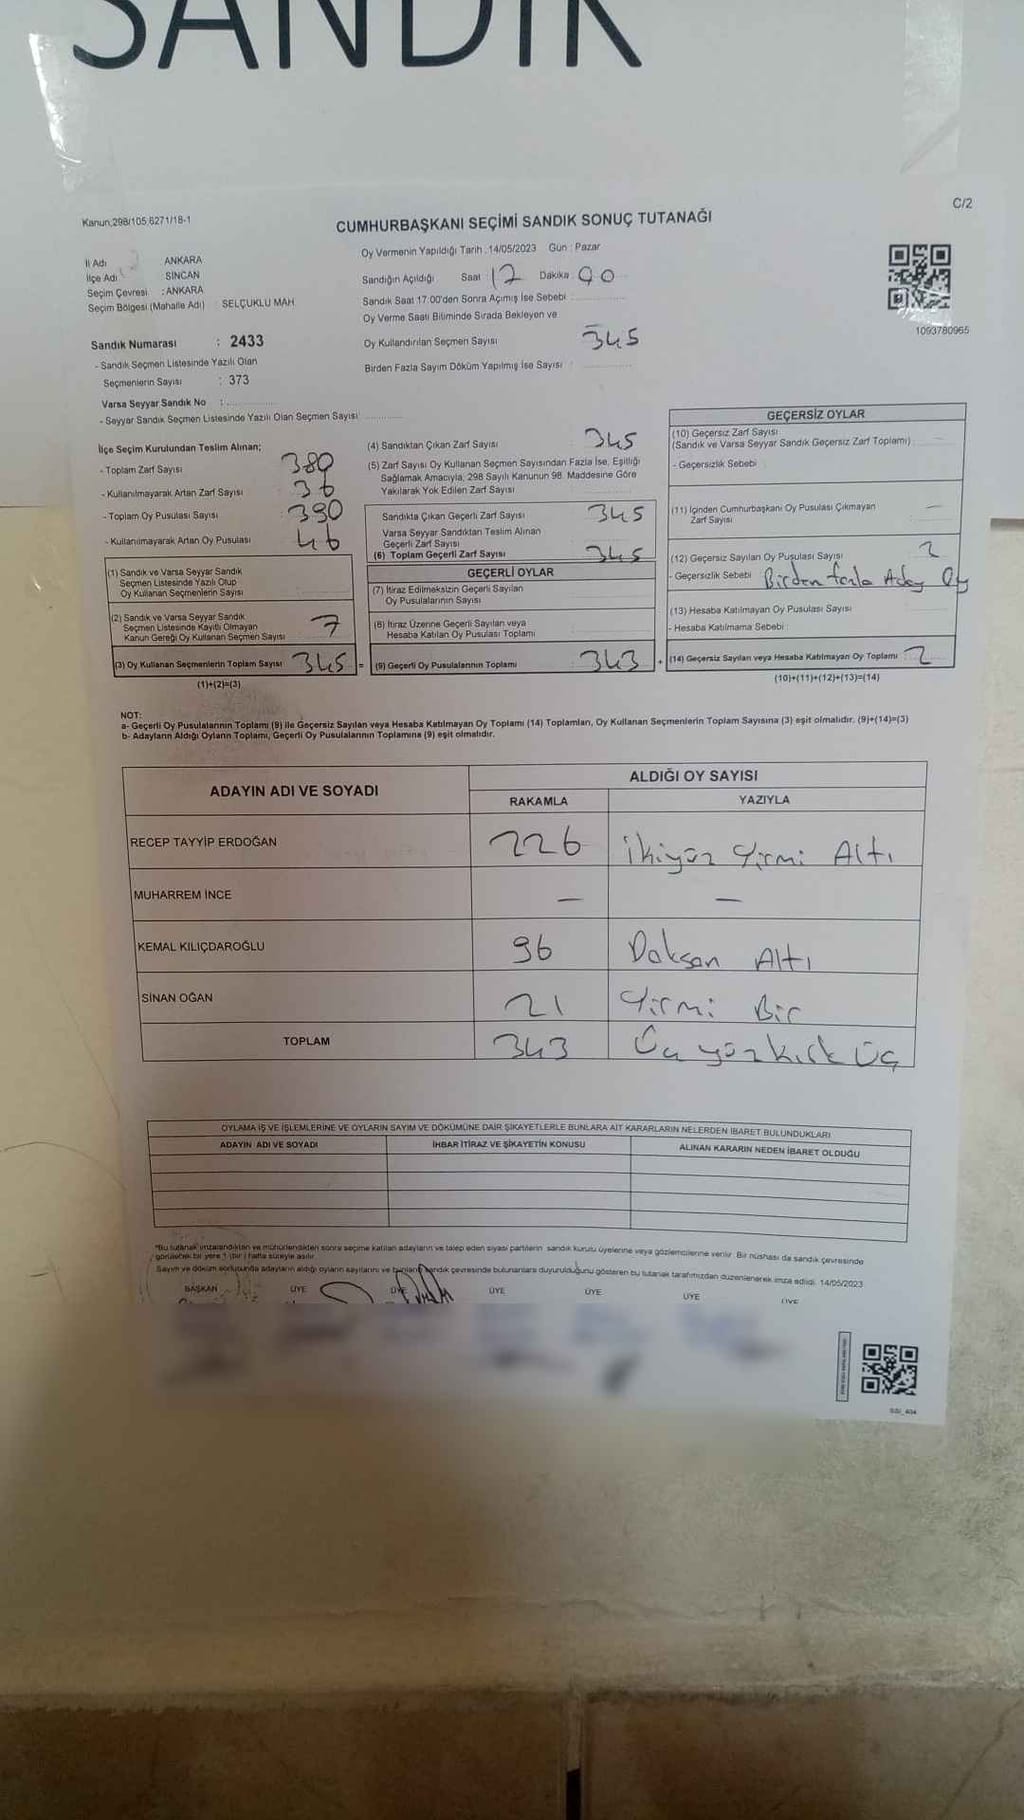 SANDIK
Kanun;298/105,6271/18-1
C/2
CUMHURBAŞKANI SEÇİMİ SANDIK SONUÇ TUTANAĞI
İl Adı ANKARA
İlçe Adı SİNCAN
Seçim Çevresi : ANKARA
Seçim Bölgesi (Mahalle Adı) SELÇUKLU MAH
Oy Vermenin Yapıldığı Tarih : 14/05/2023 Gün : Pazar
Sandığın Açıldığı Saat : 17 Dakika : 00
Sandık Saat 17:00'den Sonra Açımış İse Sebebi
Oy Verme Saati Bitiminde Sırada Bekleyen ve
Oy Kullandırılan Seçmen Sayısı 345
Birden Fazla Sayım Döküm Yapılmış İse Sayısı :
1093780965
Sandık Numarası : 2433
- Sandık Seçmen Listesinde Yazılı Olan
Seçmenlerin Sayısı : 373
Varsa Seyyar Sandık No :
- Seyyar Sandık Seçmen Listesinde Yazılı Olan Seçmen Sayısı
İlçe Seçim Kurulundan Teslim Alınan;
- Toplam Zarf Sayısı 380
- Kullanılmayarak Artan Zarf Sayısı 36
- Toplam Oy Pusulası Sayısı 390
- Kullanılmayarak Artan Oy Pusulası 46
(1) Sandık ve Varsa Seyyar Sandık
Seçmen Listesinde Yazılı Olup
Oy Kullanan Seçmenlerin Sayısı
(2) Sandık ve Varsa Seyyar Sandık
Seçmen Listesinde Kayıtlı Olmayan
Kanun Gereği Oy Kullanan Seçmen Sayısı 7
(3) Oy Kullanan Seçmenlerin Toplam Sayısı 345 =
(1)+(2)=(3)
(4) Sandıktan Çıkan Zarf Sayısı 345
(5) Zarf Sayısı Oy Kullanan Seçmen Sayısından Fazla İse, Eşitliği
Sağlamak Amacıyla, 298 Sayılı Kanunun 98. Maddesine Göre
Yakılarak Yok Edilen Zarf Sayısı
Sandıkta Çıkan Geçerli Zarf Sayısı 345
Varsa Seyyar Sandıktan Teslim Alınan
Geçerli Zarf Sayısı
(6) Toplam Geçerli Zarf Sayısı 345
GEÇERLİ OYLAR
(7) İtiraz Edilmeksizin Geçerli Sayılan
Oy Pusulalarının Sayısı
(8) İtiraz Üzerine Geçerli Sayılan veya
Hesaba Katılan Oy Pusulası Toplamı
(9) Geçerli Oy Pusulalarının Toplamı 343 +
GEÇERSİZ OYLAR
(10) Geçersiz Zarf Sayısı
(Sandık ve Varsa Seyyar Sandık Geçersiz Zarf Toplamı)
- Geçersizlik Sebebi
(11) İçinden Cumhurbaşkanı Oy Pusulası Çıkmayan
Zarf Sayısı —
(12) Geçersiz Sayılan Oy Pusulası Sayısı 2
- Geçersizlik Sebebi Birden fazla Aday Oy
(13) Hesaba Katılmayan Oy Pusulası Sayısı
- Hesaba Katılmama Sebebi
(14) Geçersiz Sayılan veya Hesaba Katılmayan Oy Toplamı : 2
(10)+(11)+(12)+(13)=(14)
NOT:
a- Geçerli Oy Pusulalarının Toplamı (9) ile Geçersiz Sayılan veya Hesaba Katılmayan Oy Toplamı (14) Toplamları, Oy Kullanan Seçmenlerin Toplam Sayısına (3) eşit olmalıdır. (9)+(14)=(3)
b- Adayların Aldığı Oyların Toplamı, Geçerli Oy Pusulalarının Toplamına (9) eşit olmalıdır.
ADAYIN ADI VE SOYADI ALDIĞI OY SAYISI
RAKAMLA YAZIYLA
RECEP TAYYİP ERDOĞAN 226 İkiyüz Yirmi Altı
MUHARREM İNCE — —
KEMAL KILIÇDAROĞLU 96 Doksan Altı
SİNAN OĞAN 21 Yirmi Bir
TOPLAM 343 Üç yüz kırk üç
OYLAMA İŞ VE İŞLEMLERİNE VE OYLARIN SAYIM VE DÖKÜMÜNE DAİR ŞİKAYETLERLE BUNLARA AİT KARARLARIN NELERDEN İBARET BULUNDUKLARI
ADAYIN ADI VE SOYADI İHBAR İTİRAZ VE ŞİKAYETİN KONUSU ALINAN KARARIN NEDEN İBARET OLDUĞU
"Bu tutanak imzalandıktan ve mühürlendikten sonra seçime katılan adayların ve talep eden siyasi partilerin sandık kurulu üyelerine veya gözlemcilerine verilir. Bir nüshası da sandık çevresinde
görülecek bir yere 1 (bir) hafta süreyle asılır.
Sayım ve döküm sonucunda adayların aldığı oyların sayılarını ve bunların sandık çevresinde bulunanlara duyurulduğunu gösteren bu tutanak tarafımızdan düzenlenerek imza edildi. 14/05/2023
BAŞKAN ÜYE ÜYE ÜYE ÜYE ÜYE ÜYE